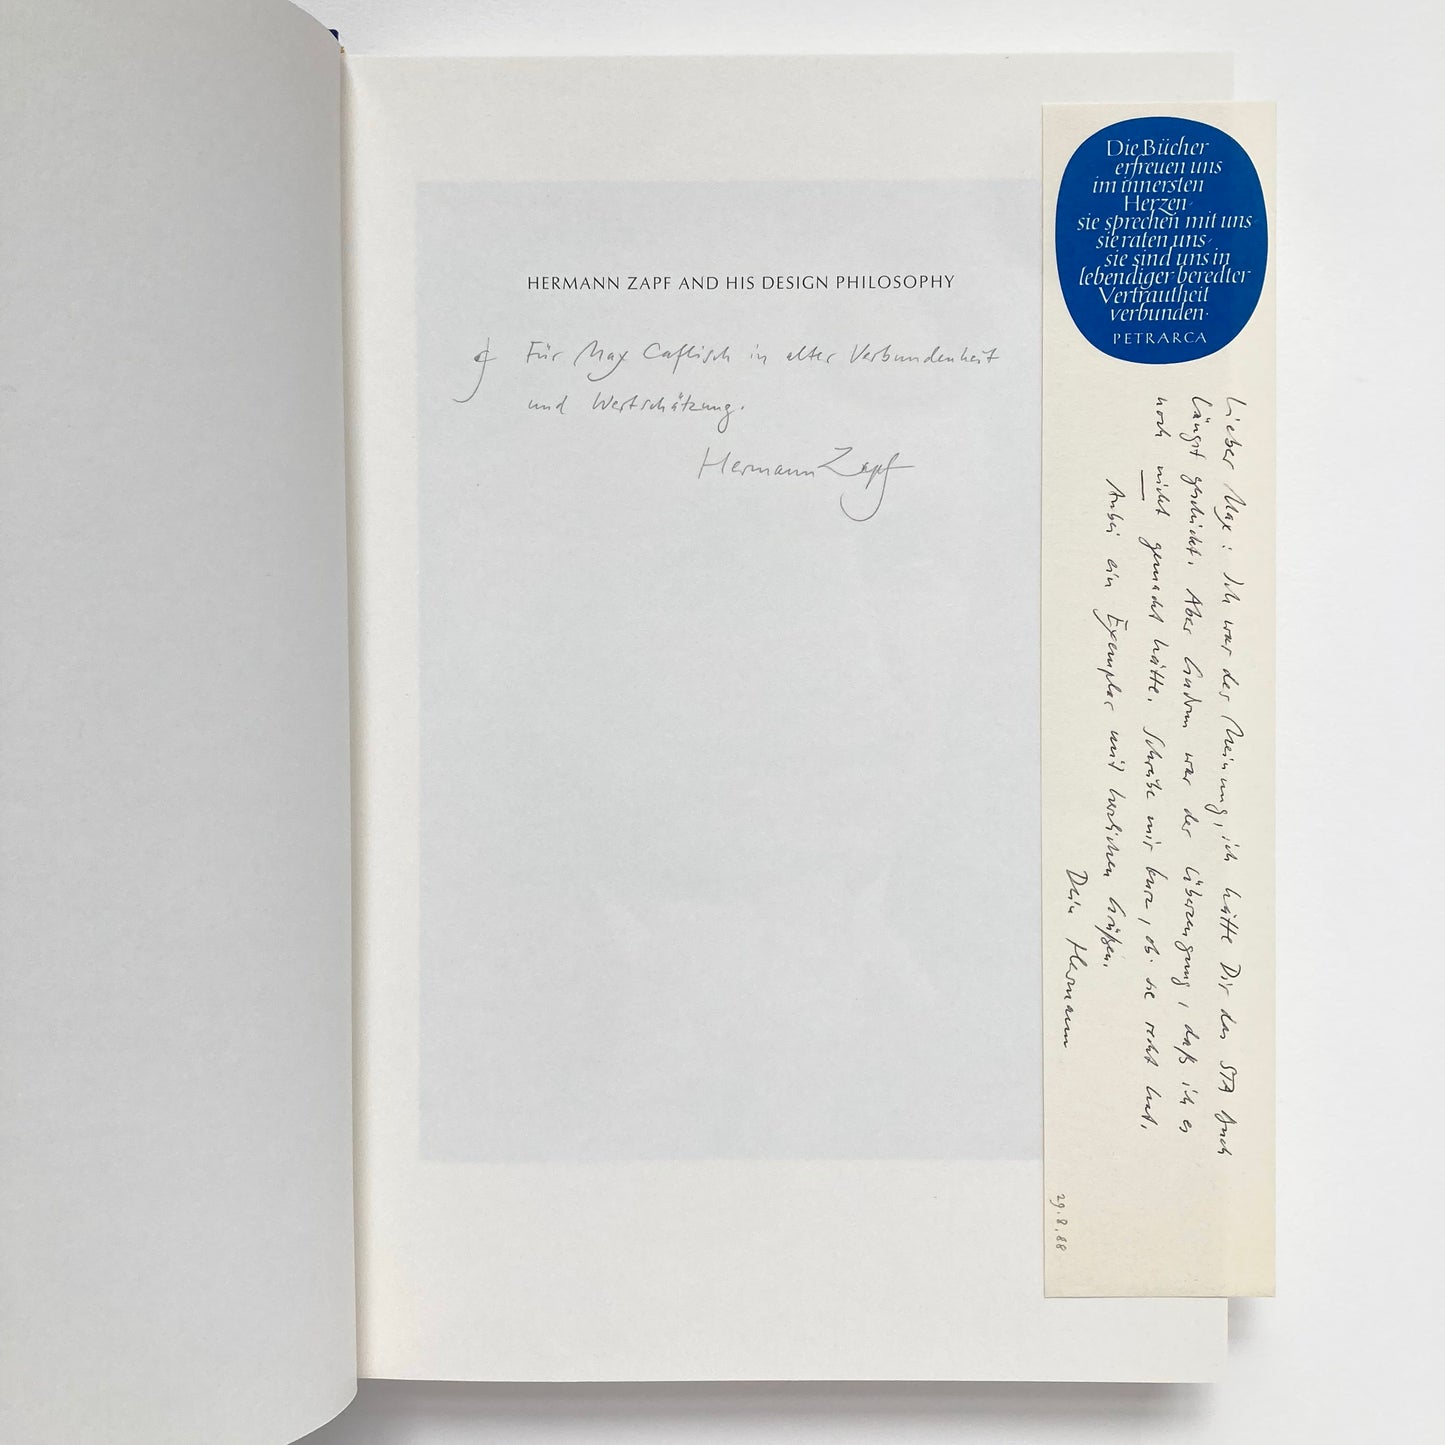 HERMANN ZAPF AND HIS DESIGN PHILOSOPHY
Für Max Caflisch in alter Verbundenheit
und Wertschätzung.
Hermann Zapf
Die Bücher
erfreuen uns
im innersten
Herzen,
sie sprechen mit uns,
sie raten uns,
sie sind uns in
lebendiger beredter
Vertrautheit
verbunden.
PETRARCA
Lieber Max: Ich war der Meinung, ich hätte Dir das STA Buch
längst geschickt. Aber Gudrun war der Überzeugung, daß ich es
noch nicht gemacht hätte. Schreibe mir kurz, ob sie recht hat.
Anbei ein Exemplar mit herzlichen Grüßen.
Dein Hermann
29.8.88